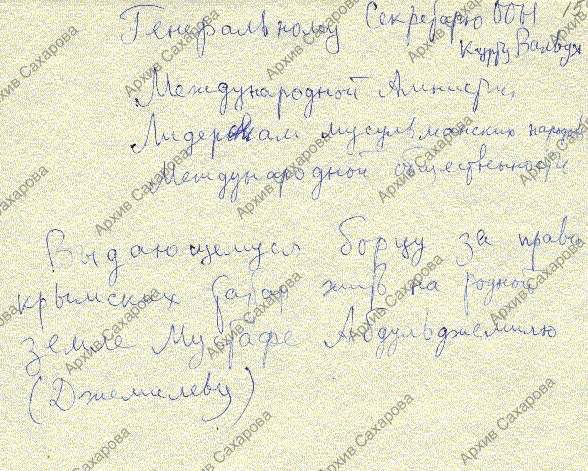 Генеральному Секретарю ООН
Курту Вальдх
Международной Амнистии
Лидерам мусульманских народов
Международной общественности
Выдающемуся борцу за права
крымских татар жить на родной
земле Мустафе Абдульджемилю
(Джемилеву)
Архив Сахарова